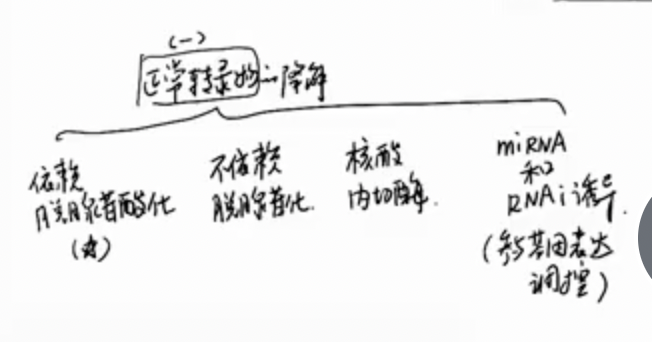 (一)
正常转录物的降解
依赖
脱腺苷酸化
(主)
不依赖
脱腺苷化.
核酸
内切酶.
miRNA
和
RNAi诱导.
(参与基因表达
调控)